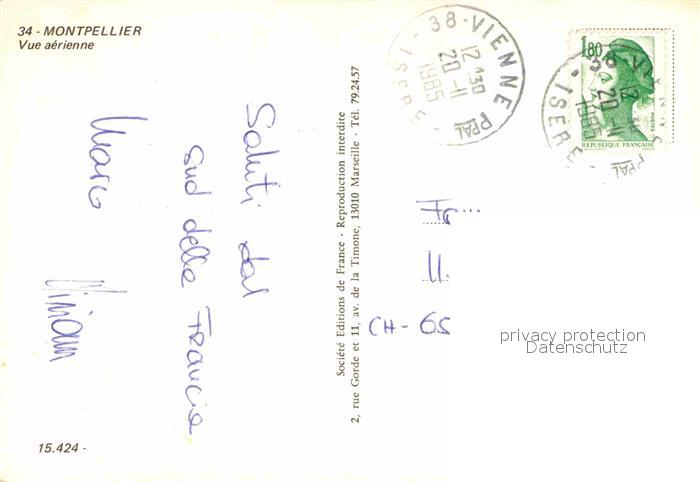 34 - MONTPELLIER
Vue aérienne
Saluti dal
sud della
Francia
Marco
Miriam
15.424 -
Société Editions de France - Reproduction interdite
2, rue Gorde et 11, av. de la Timone, 13010 Marseille - Tél. 79.24.57
38 - VIENNE PPAL
12 H30
20 - 11
1985
ISERE
1,80
POSTES
REPUBLIQUE FRANÇAISE
38 - VI
20 - 11
1985
ISERE
PPAL
Fr...
CH - 65
privacy protection
Datenschutz